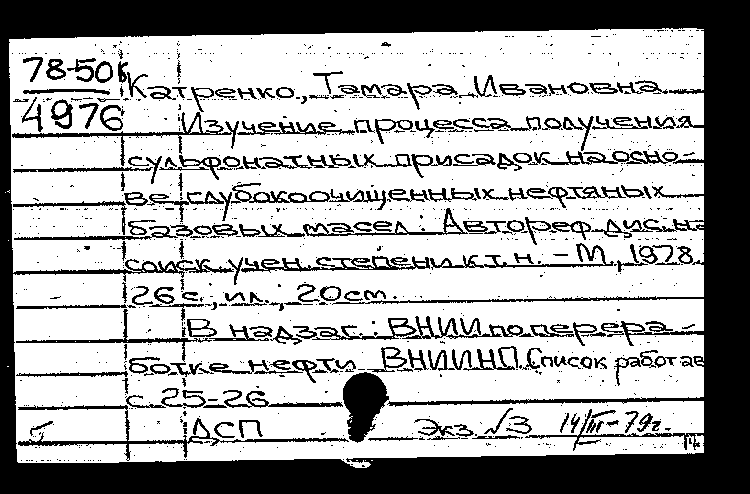 78-50к
4976
Катренко, Тамара Ивановна
Изучение процесса получения
сульфонатных присадок на осно-
ве глубокоочищенных нефтяных
базовых масел: Автореф. дис. на
соиск. учен. степени к.т.н. – М., 1978.
26 с., ил., 20 см.
В надзаг.: ВНИИ по перера-
ботке нефти ВНИИНП. Список работ ав
с. 25-26
ДСП Экз №3 14/III-79г.